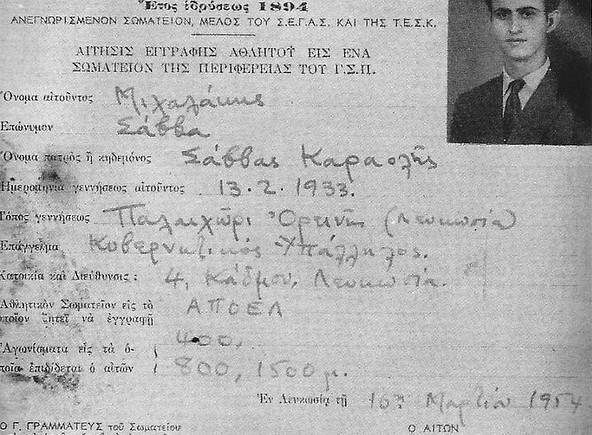 Ἔτος ἱδρύσεως 1894
ΑΝΕΓΝΩΡΙΣΜΕΝΟΝ ΣΩΜΑΤΕΙΟΝ, ΜΕΛΟΣ ΤΟΥ Σ.Ε.Γ.Α.Σ. ΚΑΙ ΤΗΣ Τ.Ε.Σ.Κ.
ΑΙΤΗΣΙΣ ΕΓΓΡΑΦΗΣ ΑΘΛΗΤΟΥ ΕΙΣ ΕΝΑ
ΣΩΜΑΤΕΙΟΝ ΤΗΣ ΠΕΡΙΦΕΡΕΙΑΣ ΤΟΥ Γ.Σ.Π.
Ὄνομα αἰτοῦντος Μιχαλάκης
Ἐπώνυμον Σάββα
Ὄνομα πατρὸς ἢ κηδεμόνος Σάββας Καραολῆς
Ἡμερομηνία γεννήσεως αἰτοῦντος 13.2.1933.
Τόπος γεννήσεως Παλαιχῶρι Ὀρεινῆς (Λευκωσία)
Ἐπάγγελμα Κυβερνητικός Ὑπάλληλος.
Κατοικία και Διεύθυνσις: 4, Κάδμου, Λευκωσία.
Ἀθλητικὸν Σωματεῖον εἰς τὸ
ὁποῖον ζητεῖ νὰ ἐγγραφῇ ΑΠΟΕΛ
Ἀγωνίσματα εἰς τὰ ὁ- 400,
ποῖα ἐπιδίδεται ὁ αἰτῶν 800, 1500 μ.
Ἐν Λευκωσίᾳ τῇ 16η Μαρτίου 1954
Ο Γ. ΓΡΑΜΜΑΤΕΥΣ τοῦ Σωματείου
Ο ΑΙΤΩΝ